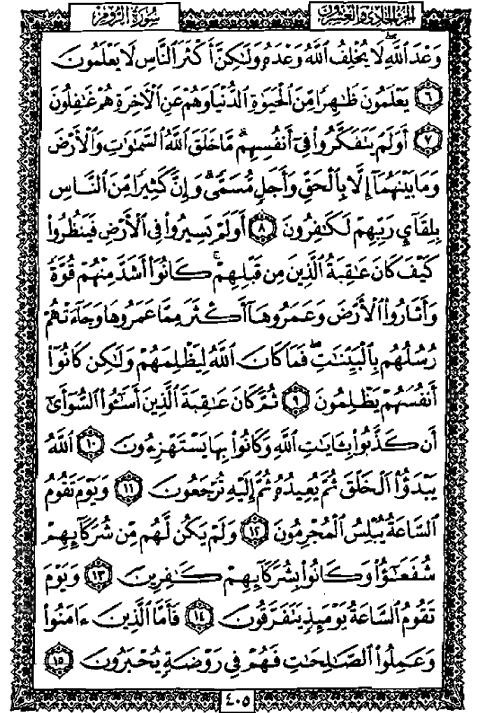 سُورَةُ الرُّومِ الجزء الحادي والعشرون
وَعْدَ اللَّهِ لَا يُخْلِفُ اللَّهُ وَعْدَهُ وَلَٰكِنَّ أَكْثَرَ النَّاسِ لَا يَعْلَمُونَ
﴿٦﴾ يَعْلَمُونَ ظَاهِرًا مِّنَ الْحَيَوٰةِ الدُّنْيَا وَهُمْ عَنِ الْآخِرَةِ هُمْ غَٰفِلُونَ
﴿٧﴾ أَوَلَمْ يَتَفَكَّرُوا۟ فِىٓ أَنفُسِهِم مَّا خَلَقَ اللَّهُ السَّمَٰوَٰتِ وَالْأَرْضَ
وَمَا بَيْنَهُمَآ إِلَّا بِالْحَقِّ وَأَجَلٍ مُّسَمًّى وَإِنَّ كَثِيرًا مِّنَ النَّاسِ
بِلِقَآئِ رَبِّهِمْ لَكَٰفِرُونَ ﴿٨﴾ أَوَلَمْ يَسِيرُوا۟ فِى الْأَرْضِ فَيَنظُرُوا۟
كَيْفَ كَانَ عَٰقِبَةُ الَّذِينَ مِن قَبْلِهِمْ كَانُوٓا۟ أَشَدَّ مِنْهُمْ قُوَّةً
وَأَثَارُوا۟ الْأَرْضَ وَعَمَرُوهَآ أَكْثَرَ مِمَّا عَمَرُوهَا وَجَآءَتْهُمْ
رُسُلُهُم بِالْبَيِّنَٰتِ فَمَا كَانَ اللَّهُ لِيَظْلِمَهُمْ وَلَٰكِن كَانُوٓا۟
أَنفُسَهُمْ يَظْلِمُونَ ﴿٩﴾ ثُمَّ كَانَ عَٰقِبَةَ الَّذِينَ أَسَٰٓـُٔوا۟ السُّوٓأَىٰٓ
أَن كَذَّبُوا۟ بِـَٔايَٰتِ اللَّهِ وَكَانُوا۟ بِهَا يَسْتَهْزِءُونَ ﴿١٠﴾ اللَّهُ
يَبْدَؤُا۟ الْخَلْقَ ثُمَّ يُعِيدُهُۥ ثُمَّ إِلَيْهِ تُرْجَعُونَ ﴿١١﴾ وَيَوْمَ تَقُومُ
السَّاعَةُ يُبْلِسُ الْمُجْرِمُونَ ﴿١٢﴾ وَلَمْ يَكُن لَّهُم مِّن شُرَكَآئِهِمْ
شُفَعَٰٓؤُا۟ وَكَانُوا۟ بِشُرَكَآئِهِمْ كَٰفِرِينَ ﴿١٣﴾ وَيَوْمَ
تَقُومُ السَّاعَةُ يَوْمَئِذٍ يَتَفَرَّقُونَ ﴿١٤﴾ فَأَمَّا الَّذِينَ ءَامَنُوا۟
وَعَمِلُوا۟ الصَّٰلِحَٰتِ فَهُمْ فِى رَوْضَةٍ يُحْبَرُونَ ﴿١٥﴾
٤٠٥